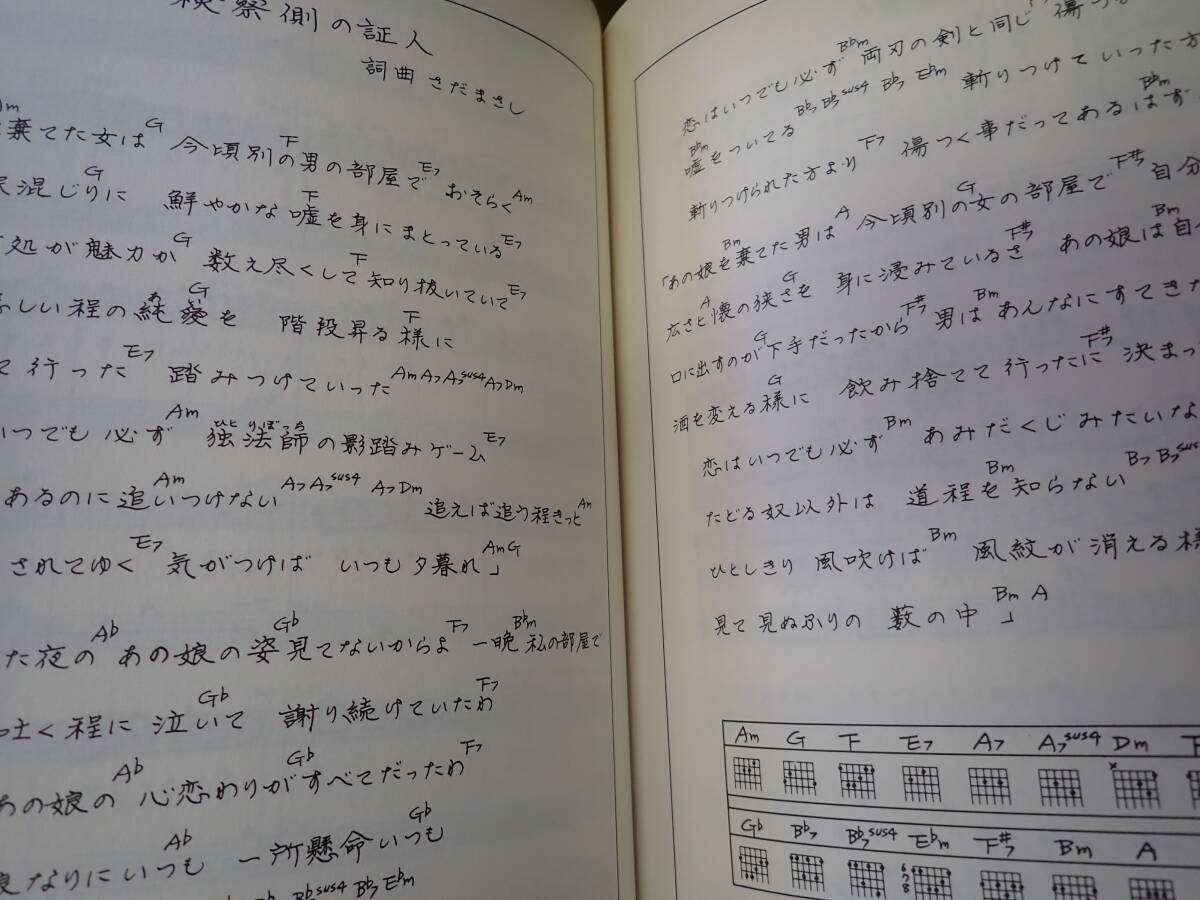 検察側の証人
詞曲 さだまさし
棄てた女は G 今頃別の F 男の部屋で E7 おそらく Am
混じりに G 鮮やかな F 嘘を身にまとっている E7
処が魅力か G 数え尽くして F 知り抜いていて E7
しい程の純愛 あい G を 階段昇る F 様に
て行った E7 踏みつけていった Am A7 A7sus4 A7 Dm
いつでも必ず Am 独法師 ひとりぼっち の影踏みゲーム E7
あるのに追いつけない Am A7 A7sus4 A7 Dm 追えば追う程きっと Am
されてゆく E7 気がつけば いつも夕暮れ」 Am G
た夜の Ab あの娘の姿 Gb 見てないからよ F7 一晩 Bbm 私の部屋で
吐く程に泣いて Gb 謝り続けていたわ F7
あの娘の Ab 心恋わりが Gb すべてだったわ F7
なりにいつも Ab 一所懸命いつも Gb
Bbsus4 Bb7 Ebm
恋はいつでも必ず Bbm 両刃の剣と同じ
嘘をついてる Bbm Bb7 Bb7sus4 Bb7 Ebm 斬りつけていった方
斬りつけられた方より F7 傷つく事だってあるはず Bbm
「あの娘を Bm 棄てた男は A 今頃別の G 女の部屋で F#7 自分
広さと A 懐の狭さを G 身に浸みているさ F#7 あの娘は Bm 自
口に出すのが G 下手だったから F#7 男は Bm あんなにすてきな
酒を変える様に G 飲み捨てて行ったに F#7 決まっ
恋はいつでも必ず Bm あみだくじみたいな
たどる奴以外は 道程を Bm 知らない B7 B7sus
ひとしきり 風吹けば Bm 風紋が消える様
見て見ぬふりの 藪の中」 Bm A
Am G F E7 A7 A7sus4 Dm
Gb Bb7 Bb7sus4 Ebm F#7 Bm A
6
7
8